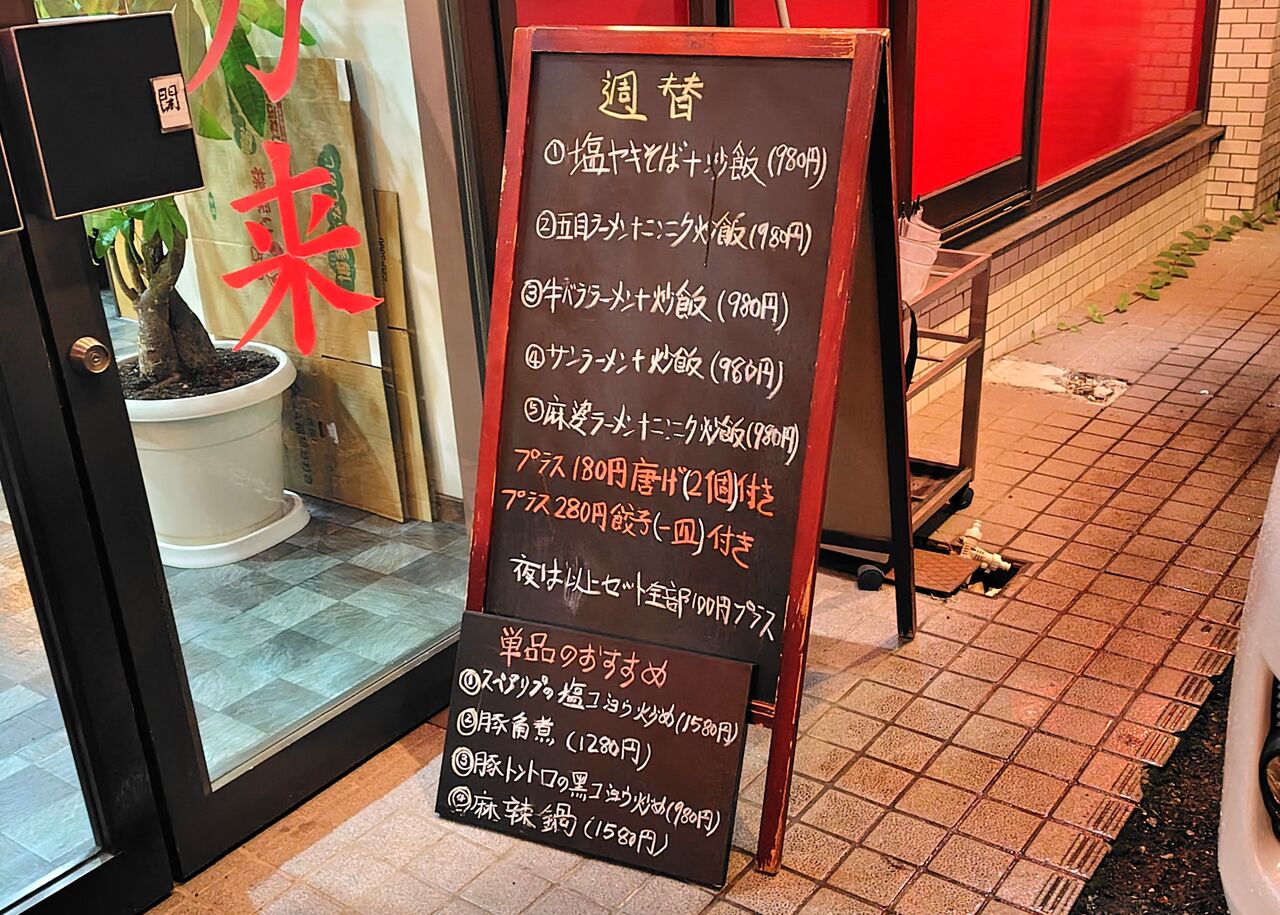 開
来
週替
①塩ヤキそば+炒飯(980円)
②五目ラーメン+ニンニク炒飯(980円)
③牛バララーメン+炒飯(980円)
④サンラーメン+炒飯(980円)
⑤麻婆ラーメン+ニンニク炒飯(980円)
プラス180円唐げ(2個)付き
プラス280円餃子(一皿)付き
夜は以上セット全部100円プラス
単品のおすすめ
①スペアリブの塩コショウ炒め(1580円)
②豚角煮(1280円)
③豚トントロの黒コショウ炒め(980円)
④麻辣鍋(1580円)